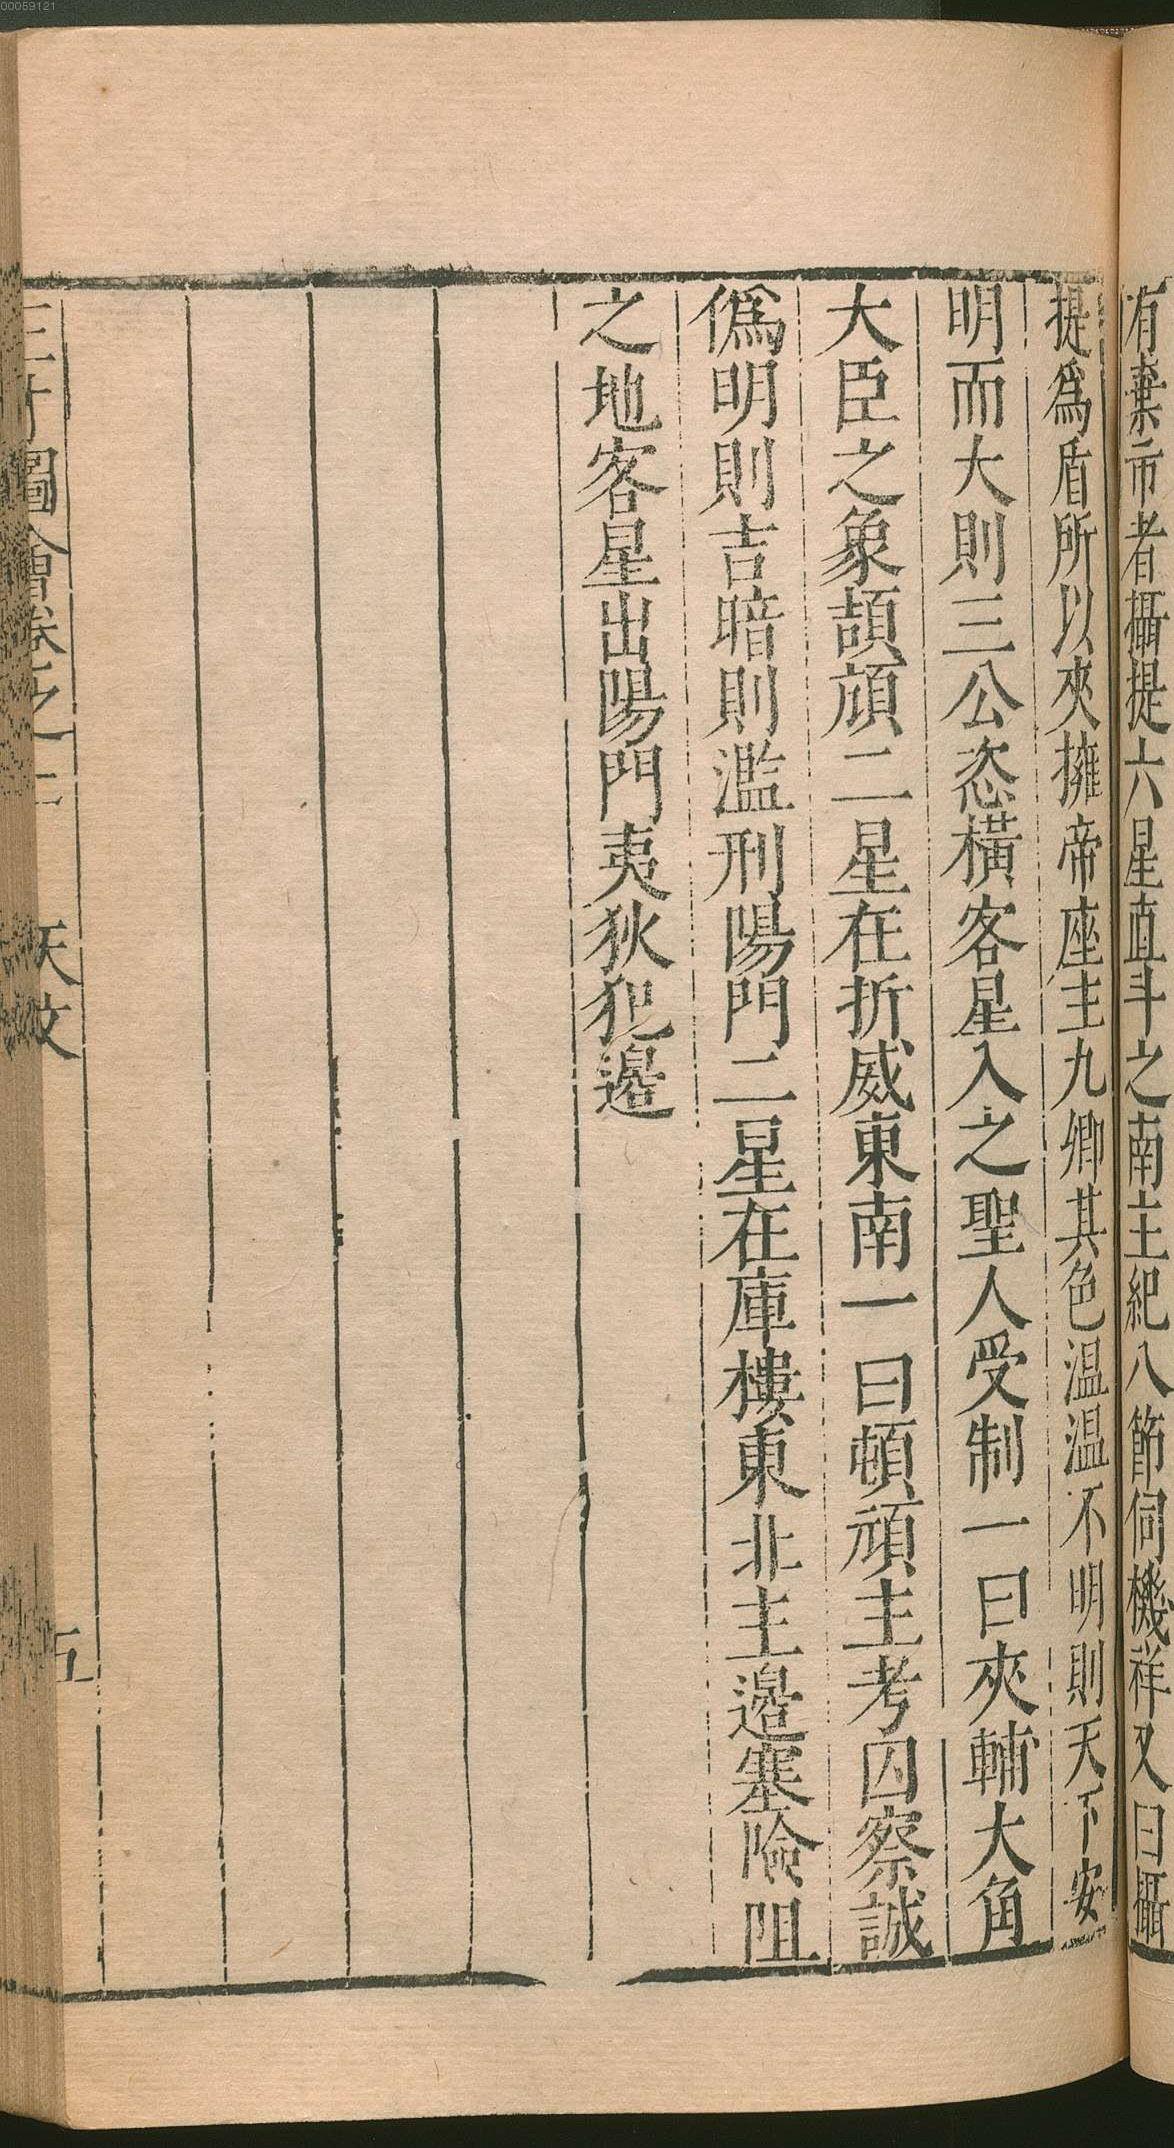 00059121
有棄市者攝提六星直斗之南主紀八節伺機祥又曰攝
提爲盾所以夾擁帝座主九卿其色温温不明則天下安
明而大則三公恣橫客星入之聖人受制一曰夾輔大角
大臣之象頡頏二星在折威東南一曰頓頑主考囚察誠
僞明則吉暗則濫刑陽門二星在庫樓東北主邊塞險阻
之地客星出陽門夷狄犯邊
三才圖會卷之二 天文 五